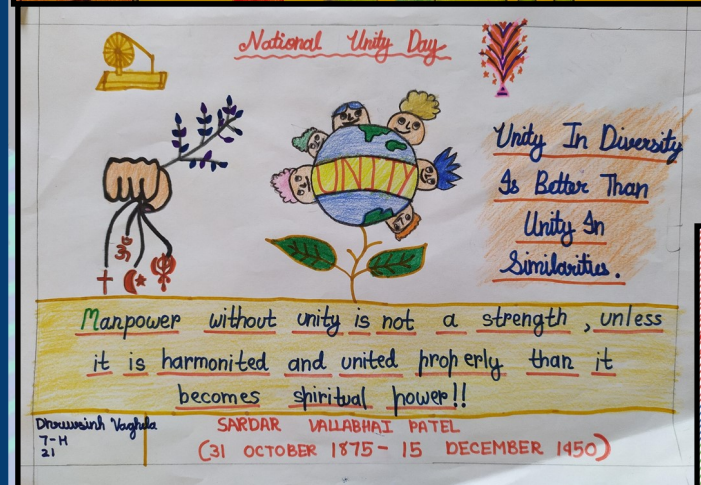 National Unity Day
UNITY
Unity In Diversity
Is Better Than
Unity In
Similarities.
Manpower without unity is not a strength, unless
it is harmonited and united properly than it
becomes shiritual power!!
Dhruwsinh Vaghela
7-H
21
SARDAR VALLABHAI PATEL
(31 OCTOBER 1875 - 15 DECEMBER 1450)